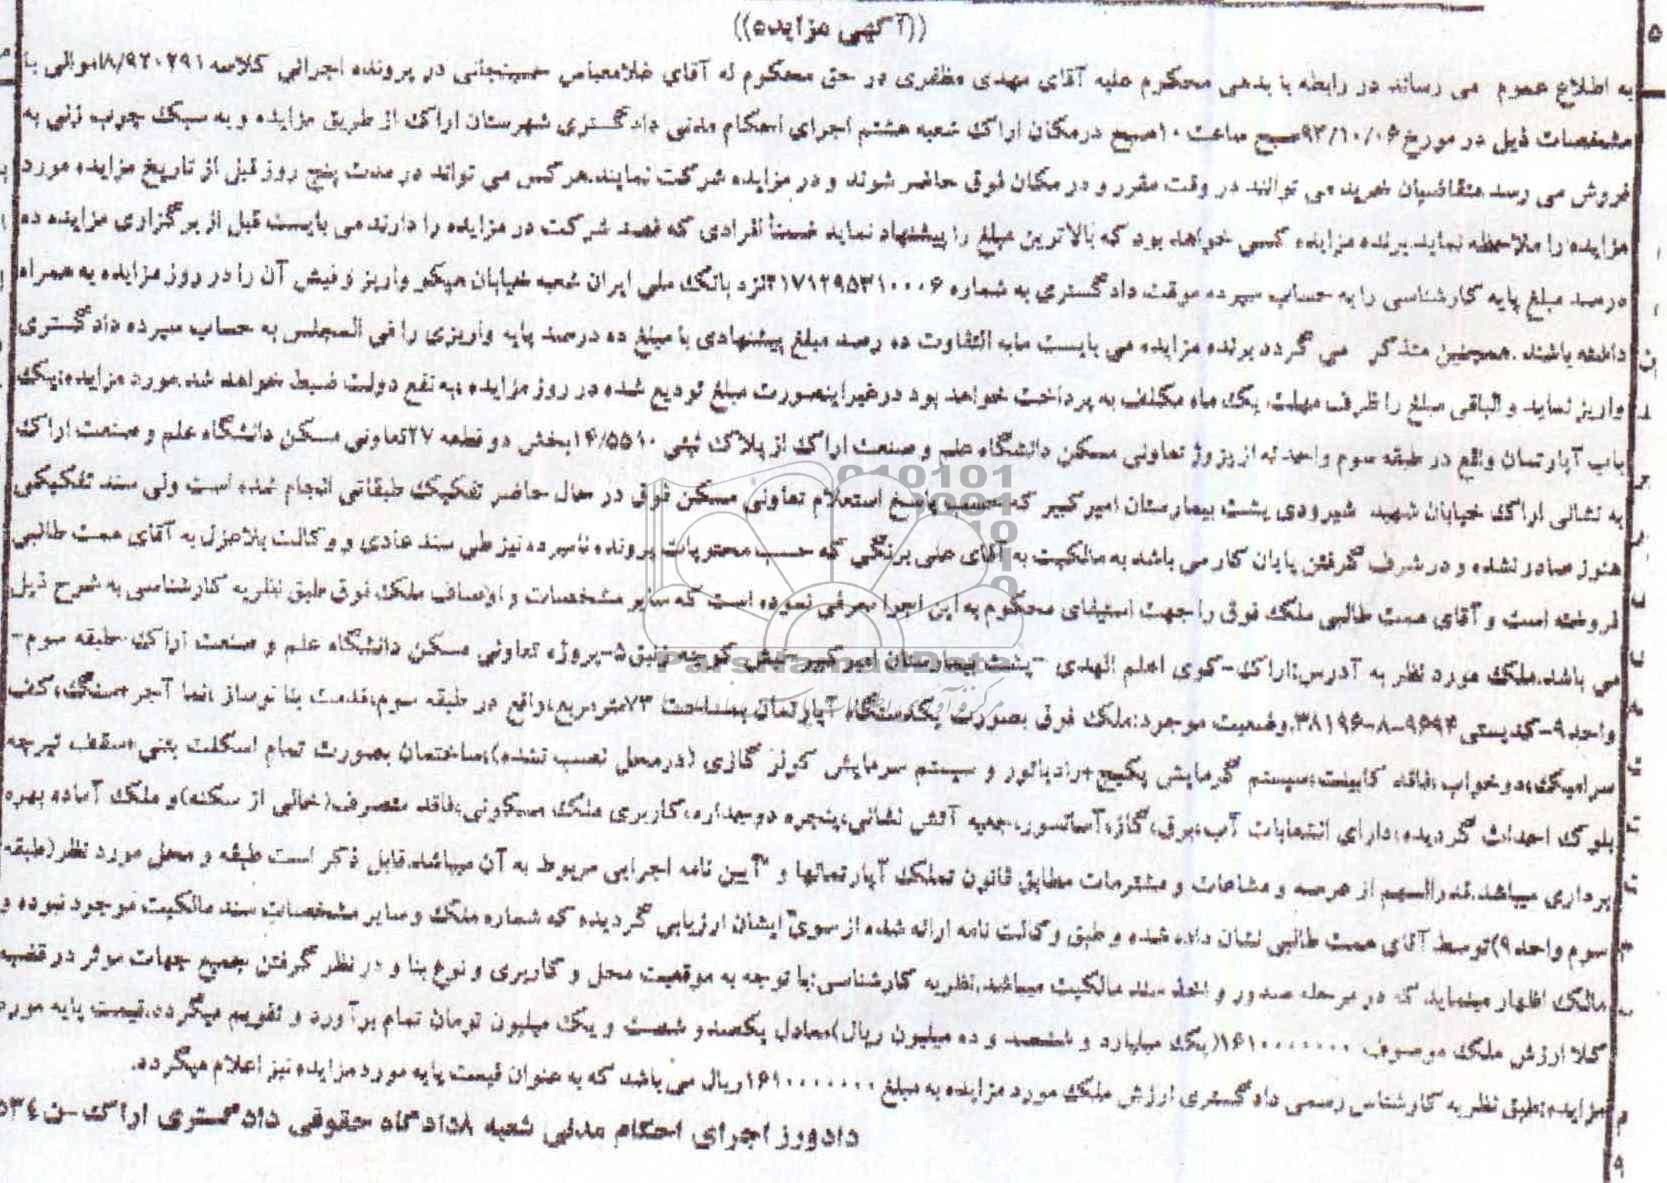 ((آگهی مزایده))
به اطلاع عموم می رساند در رابطه با بدهی محکوم علیه آقای مهدی مظفری در حق محکوم له آقای غلامعباس حسینجانی در پرونده اجرائی کلاسه ۸/۹۲۰۲۹۱اموالی با
مشخصات ذیل در مورخ ۹۲/۱۰/۰۶صبح ساعت ۱۰صبح درمکان اراک شعبه هشتم اجرای احکام مدنی دادگستری شهرستان اراک از طریق مزایده و به سبک چوب زنی به
فروش می رسد متقاضیان خرید می توانند در وقت مقرر و در مکان فوق حاضر شوند و در مزایده شرکت نمایند.هرکس می تواند در مدت پنج روز قبل از تاریخ مزایده مورد
مزایده را ملاحظه نماید.برنده مزایده کسی خواهد بود که بالاترین مبلغ را پیشنهاد نماید ضمناً افرادی که قصد شرکت در مزایده را دارند می بایست قبل از برگزاری مزایده ده
درصد مبلغ پایه کارشناسی را به حساب سپرده موقت دادگستری به شماره ۲۱۷۱۲۹۵۳۱۰۰۰۶نزد بانک ملی ایران شعبه خیابان هپکو واریز و فیش آن را در روز مزایده به همراه
داشته باشند .همچنین متذکر می گردد برنده مزایده می بایست مابه التفاوت ده رصد مبلغ پیشنهادی با مبلغ ده درصد پایه واریزی را فی المجلس به حساب سپرده دادگستری
واریز نماید و الباقی مبلغ را ظرف مهلت یک ماه مکلف به پرداخت خواهد بود درغیراینصورت مبلغ تودیع شده در روز مزایده به نفع دولت ضبط خواهد شد.مورد مزایده:یک
باب آپارتمان واقع در طبقه سوم واحد نه از پروژ تعاونی مسکن دانشگاه علم و صنعت اراک از پلاک ثبتی ۱۴/۵۵۱۰بخش دو قطعه ۲۷تعاونی مسکن دانشگاه علم و صنعت اراک
به نشانی اراک خیابان شهید شیرودی پشت بیمارستان امیرکبیر که حسب پاسخ استعلام تعاونی مسکن فوق در حال حاضر تفکیک طبقاتی انجام شده است ولی سند تفکیکی
هنوز صادر نشده و در شرف گرفتن پایان کار می باشد به مالکیت به آقای علی برنگی که حسب محتویات پرونده نامبرده نیز طی سند عادی و وکالت بلاعزل به آقای همت طالبی
فروخته است و آقای همت طالبی ملک فوق را جهت استیفای محکوم به این اجرا معرفی نموده است که سایر مشخصات و اوصاف ملک فوق طبق نظریه کارشناسی به شرح ذیل
می باشد.ملک مورد نظر به آدرس:اراک-کوی اعلم الهدی -پشت بیمارستان امیرکبیر-نبش کوچه زنبق۵-پروژه تعاونی مسکن دانشگاه علم و صنعت اراک-طبقه سوم-
واحد۹-کدپستی۹۶۹۴-۸-۳۸۱۹۶.وضعیت موجود:ملک فوق بصورت یکدستگاه آپارتمان بمساحت ۷۳مترمربع،واقع در طبقه سوم،قدمت بنا نوساز ،نما آجر+سنگ،کف
سرامیک،دوخواب ،فاقد کابینت،سیستم گرمایش پکیج+رادیاتور و سیستم سرمایش کولر گازی (درمحل نصب نشده)،ساختمان بصورت تمام اسکلت بتنی+سقف تیرچه
بلوک احداث گردیده،دارای انشعابات آب،برق،گاز،آسانسور،جعبه آتش نشانی،پنجره دوجداره،کاربری ملک مسکونی،فاقد متصرف(خالی از سکنه)و ملک آماده بهره
برداری میباشد.قدرالسهم از عرصه و مشاعات و مشترمات مطابق قانون تملک آپارتمانها و آیین نامه اجرایی مربوط به آن میباشد.قابل ذکر است طبقه و محل مورد نظر(طبقه
سوم واحد۹)توسط آقای همت طالبی نشان داده شده و طبق وکالت نامه ارائه شده از سوی ایشان ارزیابی گردیده که شماره ملک و سایر مشخصات سند مالکیت موجود نبوده و
مالک اظهار مینماید که در مرحله صدور و اخذ سند مالکیت میباشد.نظریه کارشناسی:با توجه به موقعیت محل و کاربری و نوع بنا و در نظر گرفتن جمیع جهات موثر در قضیه
کلا ارزش ملک موصوف ۱۶۱۰۰۰۰۰۰۰(یک میلیارد و ششصد و ده میلیون ریال)معادل یکصد و شصت و یک میلیون تومان تمام برآورد و تقویم میگردد.قیمت پایه مورد
مزایده:طبق نظریه کارشناس رسمی دادگستری ارزش ملک مورد مزایده به مبلغ ۱۶۱۰۰۰۰۰۰۰ریال می باشد که به عنوان قیمت پایه مورد مزایده نیز اعلام میگردد.
دادورز اجرای احکام مدنی شعبه ۸دادگاه حقوقی دادگستری اراک-ن
ParsNamadData